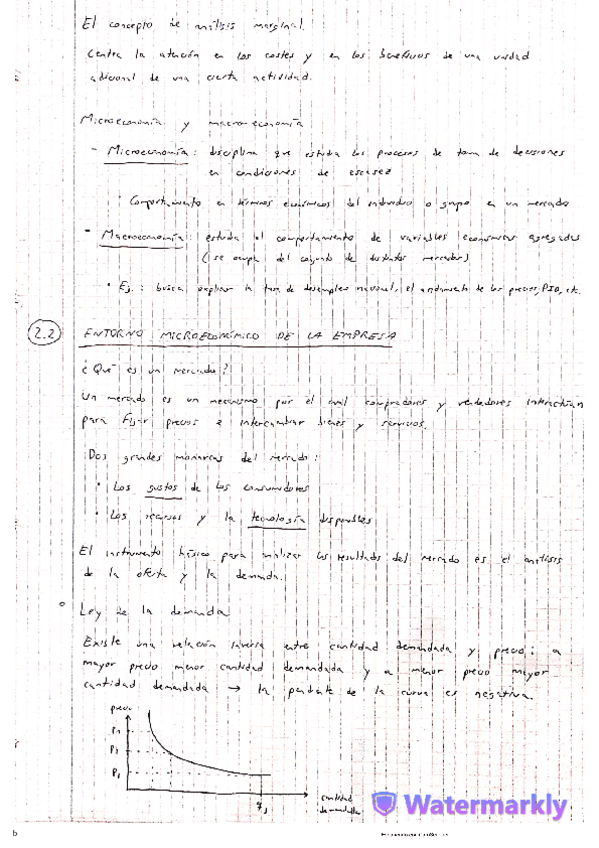 El concepto de análisis marginal
Centra la atención en los costes y en los beneficios de una unidad
adicional de una cierta actividad.
Microeconomía y macroeconomía
- Microeconomía: disciplina que estudia los procesos de toma de decisiones
en condiciones de escasez
Comportamiento en términos económicos del individuo o grupo en un mercado
- Macroeconomía: estudia el comportamiento de variables económicas agregadas
(se ocupa del conjunto de distintos mercados)
• Ej.: busca explicar la tasa de desempleo nacional, el andamiento de los precios, PIB, etc.
2.2 ENTORNO MICROECONÓMICO DE LA EMPRESA
¿Qué es un mercado?
Un mercado es un mecanismo por el cual compradores y vendedores interactúan
para fijar precios e intercambiar bienes y servicios.
Dos grandes monarcas del mercado:
• Los gustos de los consumidores
• Los recursos y la tecnología disponibles
El instrumento básico para analizar los resultados del mercado es el análisis
de la oferta y la demanda.
Ley de la demanda
Existe una relación inversa entre cantidad demandada y precio: a
mayor precio menor cantidad demandada y a menor precio mayor
cantidad demandada → la pendiente de la curva es negativa.
precio
cantidad
demandada
Watermarkly